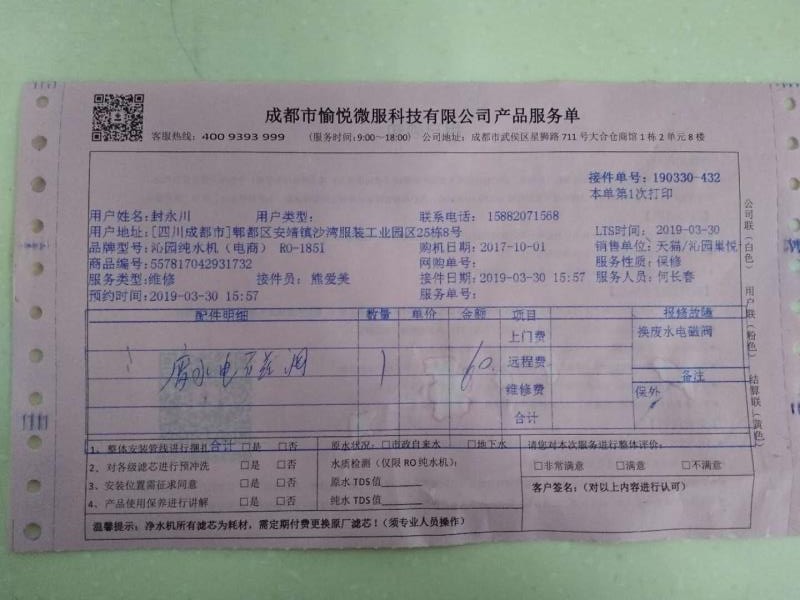 成都市愉悦微服科技有限公司产品服务单
客服热线：400 9393 999 (服务时间：9:00~18:00) 公司地址：成都市武侯区星狮路711号大合仓商馆1栋2单元8楼
接件单号：190330-432
本单第1次打印
用户姓名:封永川 用户类型: 联系电话: 15882071568
用户地址:[四川成都市]郫都区安靖镇沙湾服装工业园区25栋8号 LTS时间: 2019-03-30
品牌型号:沁园纯水机（电商） RO-185I 购机日期:2017-10-01 销售单位:天猫/沁园巢悦
商品编号:557817042931732 网购单号: 服务性质:保修
服务类型:维修 接件员: 熊爱美 接件日期:2019-03-30 15:57 服务人员:何长春
预约时间:2019-03-30 15:57 服务单号:
配件明细 数量 单价 金额 项目 报修故障
上门费 换废水电磁阀
废水电磁阀 1 60. 远程费
备注
维修费 保外
合计
合计
1、整体安装管线进行捆扎 □是 □否 原水状况：□市政自来水 □地下水 请您对本次服务进行整体评价：
2、对各级滤芯进行预冲洗 □是 □否 水质检测（仅限RO纯水机）： □非常满意 □满意 □不满意
3、安装位置需征求同意 □是 □否 原水TDS值 客户签名：（对以上内容进行认可）
4、产品使用保养进行讲解 □是 □否 纯水TDS值
温馨提示：净水机所有滤芯为耗材，需定期付费更换原厂滤芯！（须专业人员操作）
公司联（白色） 用户联（粉色） 结算联（黄色）